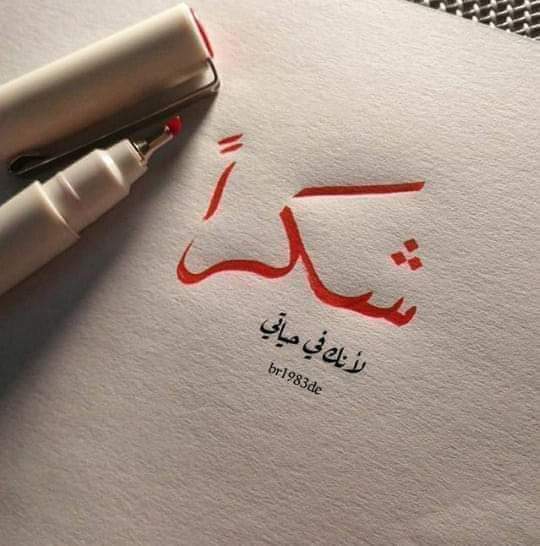 شكراً
لأنك في حياتي
br1983de